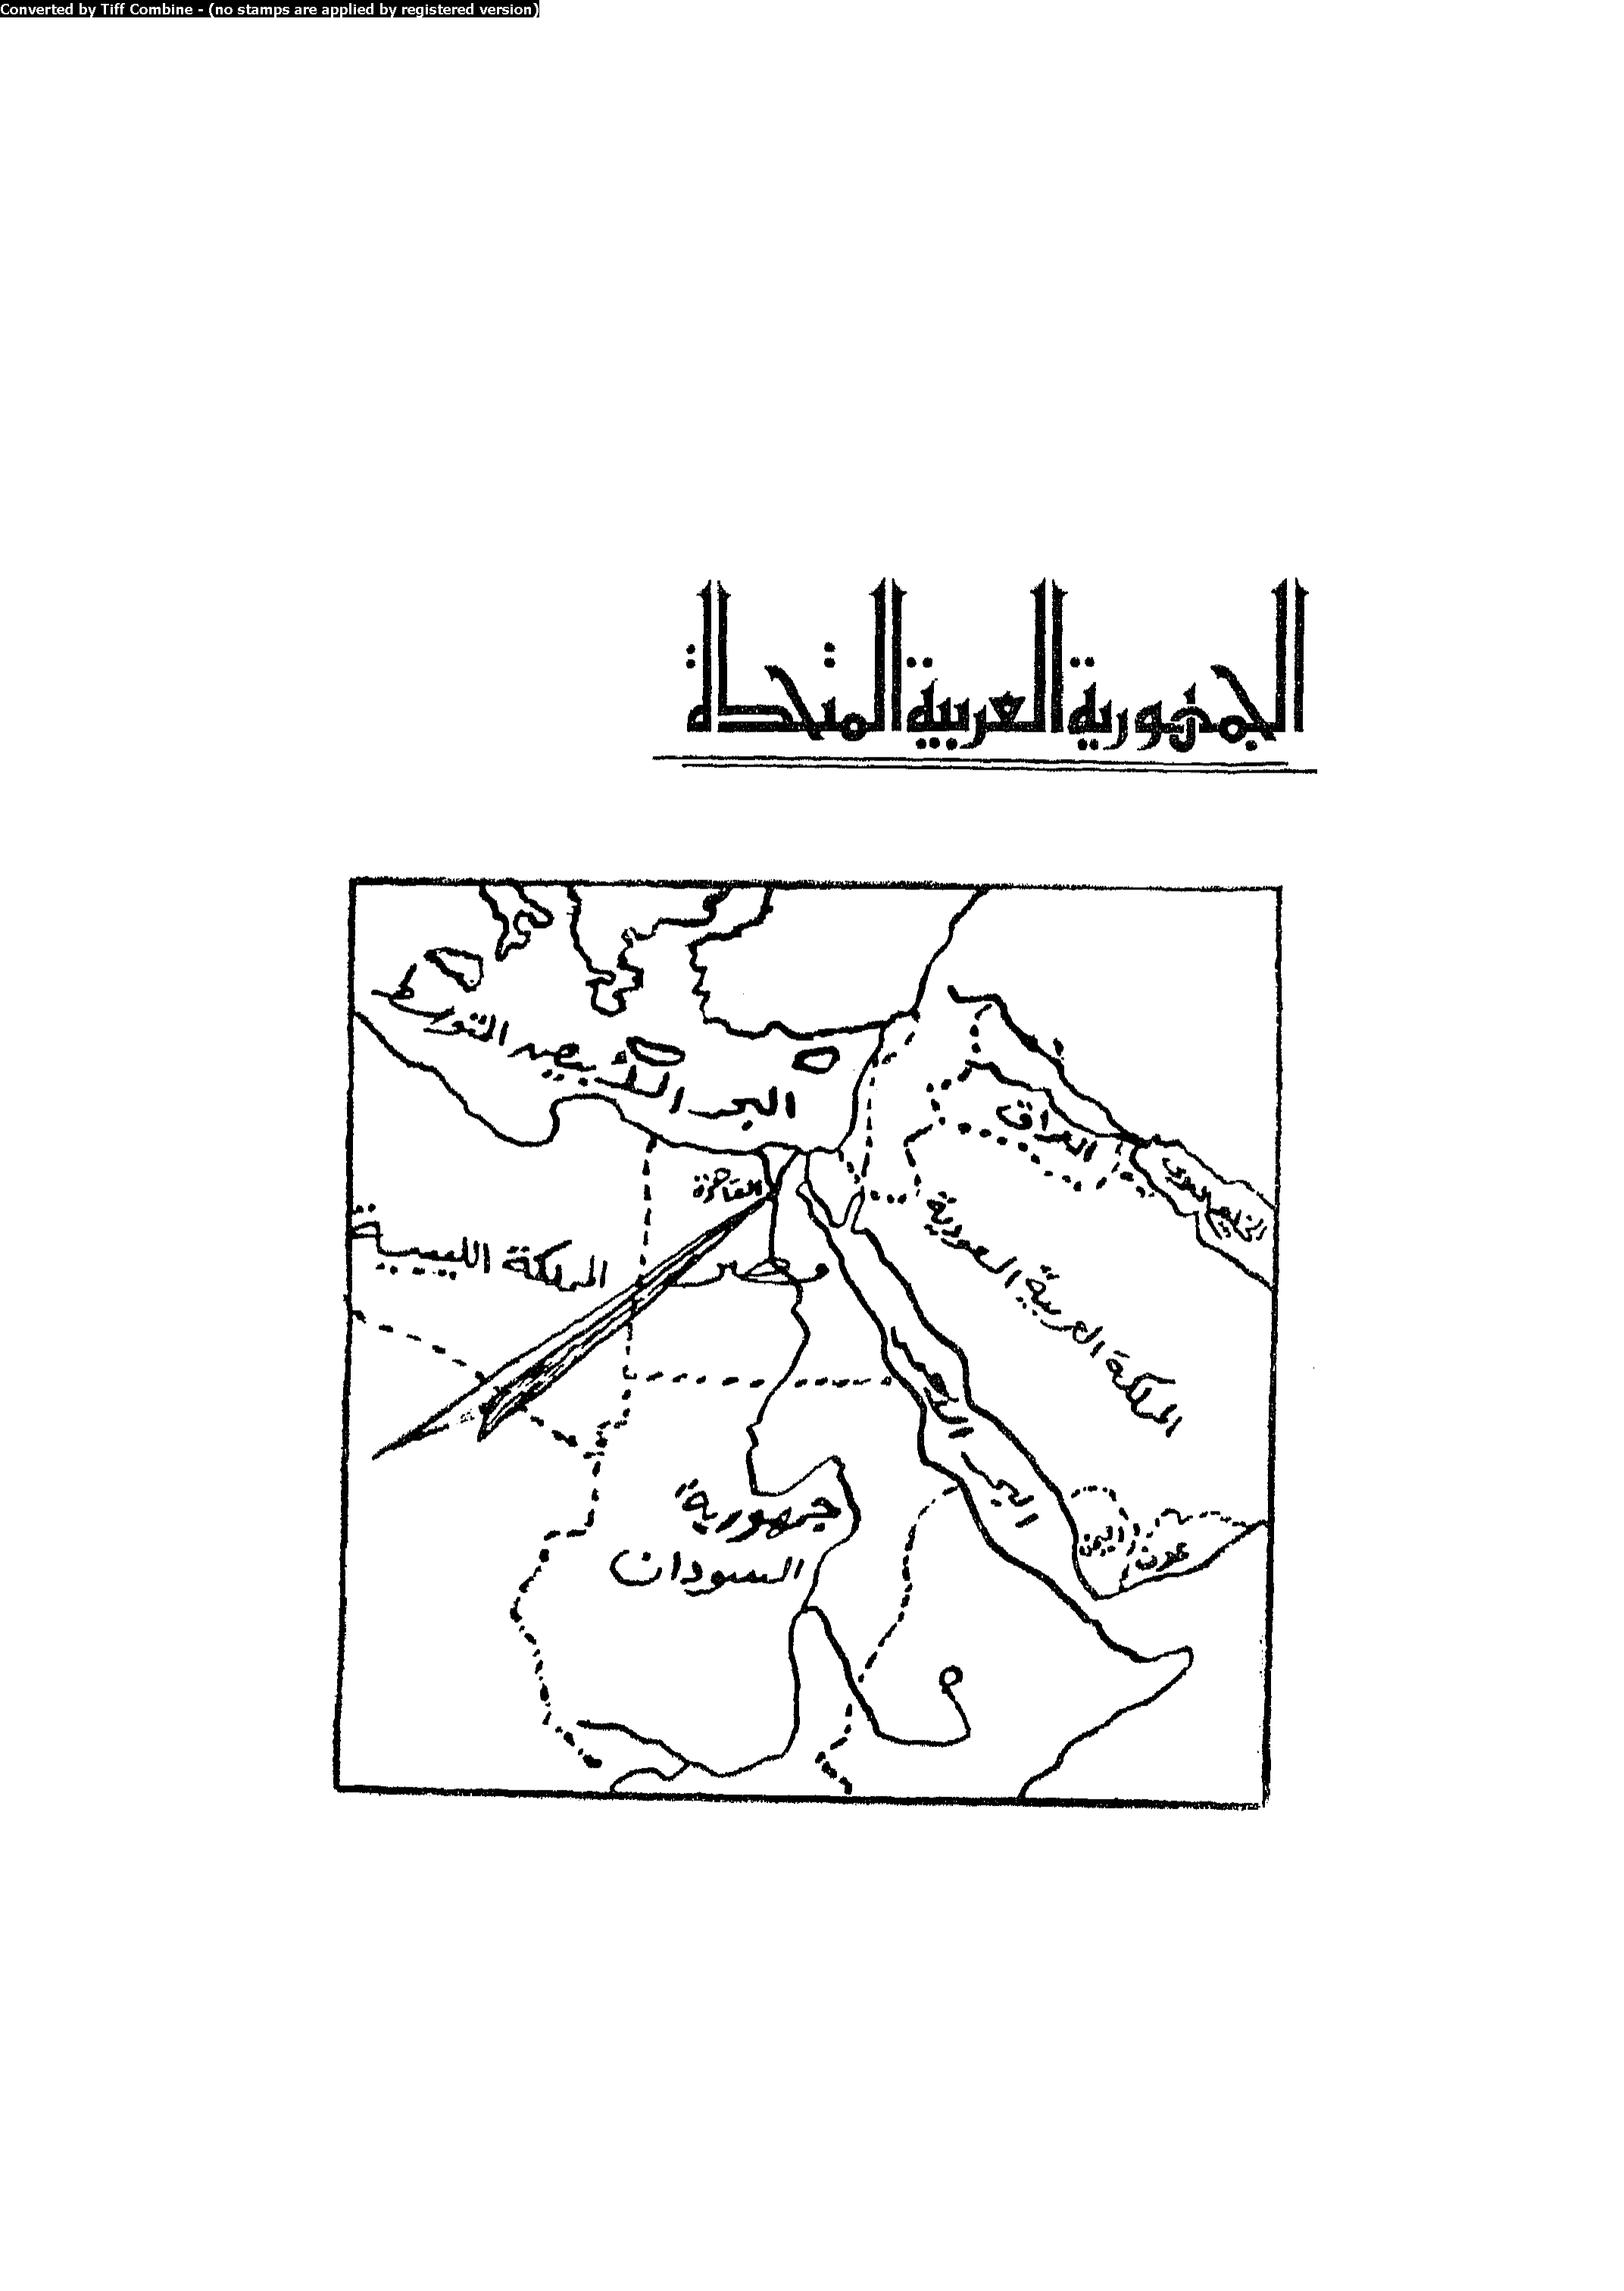 Converted by Tiff Combine - (no stamps are applied by registered version)
الجمهورية العربية المتحدة
البحر الأبيض المتوسط
العراق
القاهرة
الخليج العربي
المملكة الليبية
مصر
المملكة العربية السعودية
البحر الأحمر
جمهورية
السودان
اليمن
عدن